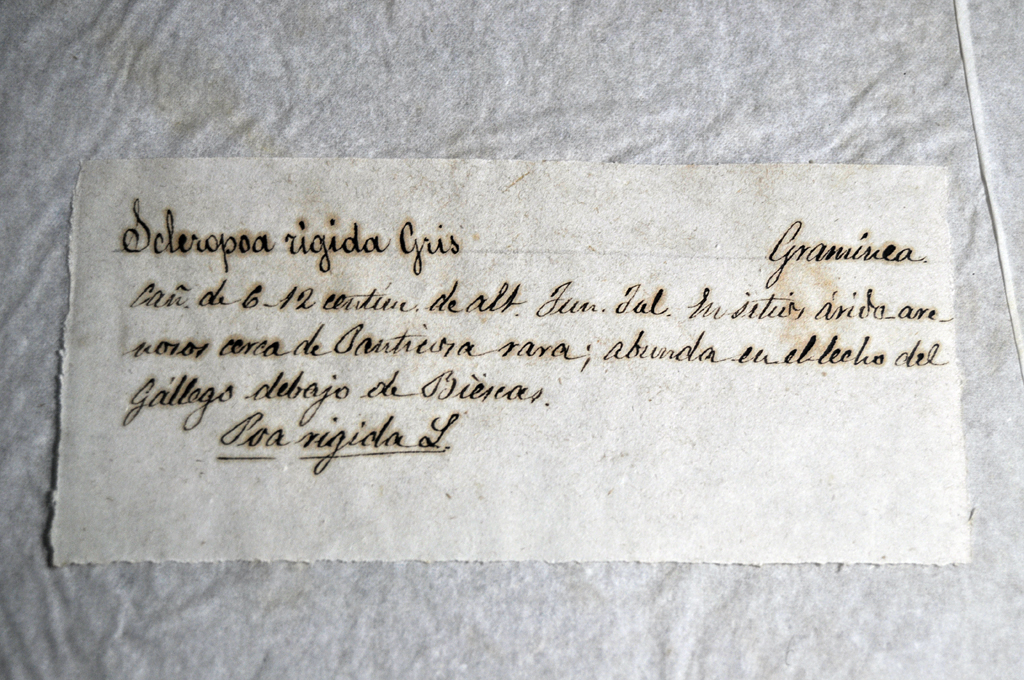 Scleropoa rigida Gris Gramínea.
Cañ. de 6-12 centim. de alt. Jun. Jul. En sitios árido-are-
nosos cerca de Panticosa rara; abunda en el lecho del
Gállego debajo de Biescas.
Poa rigida L.